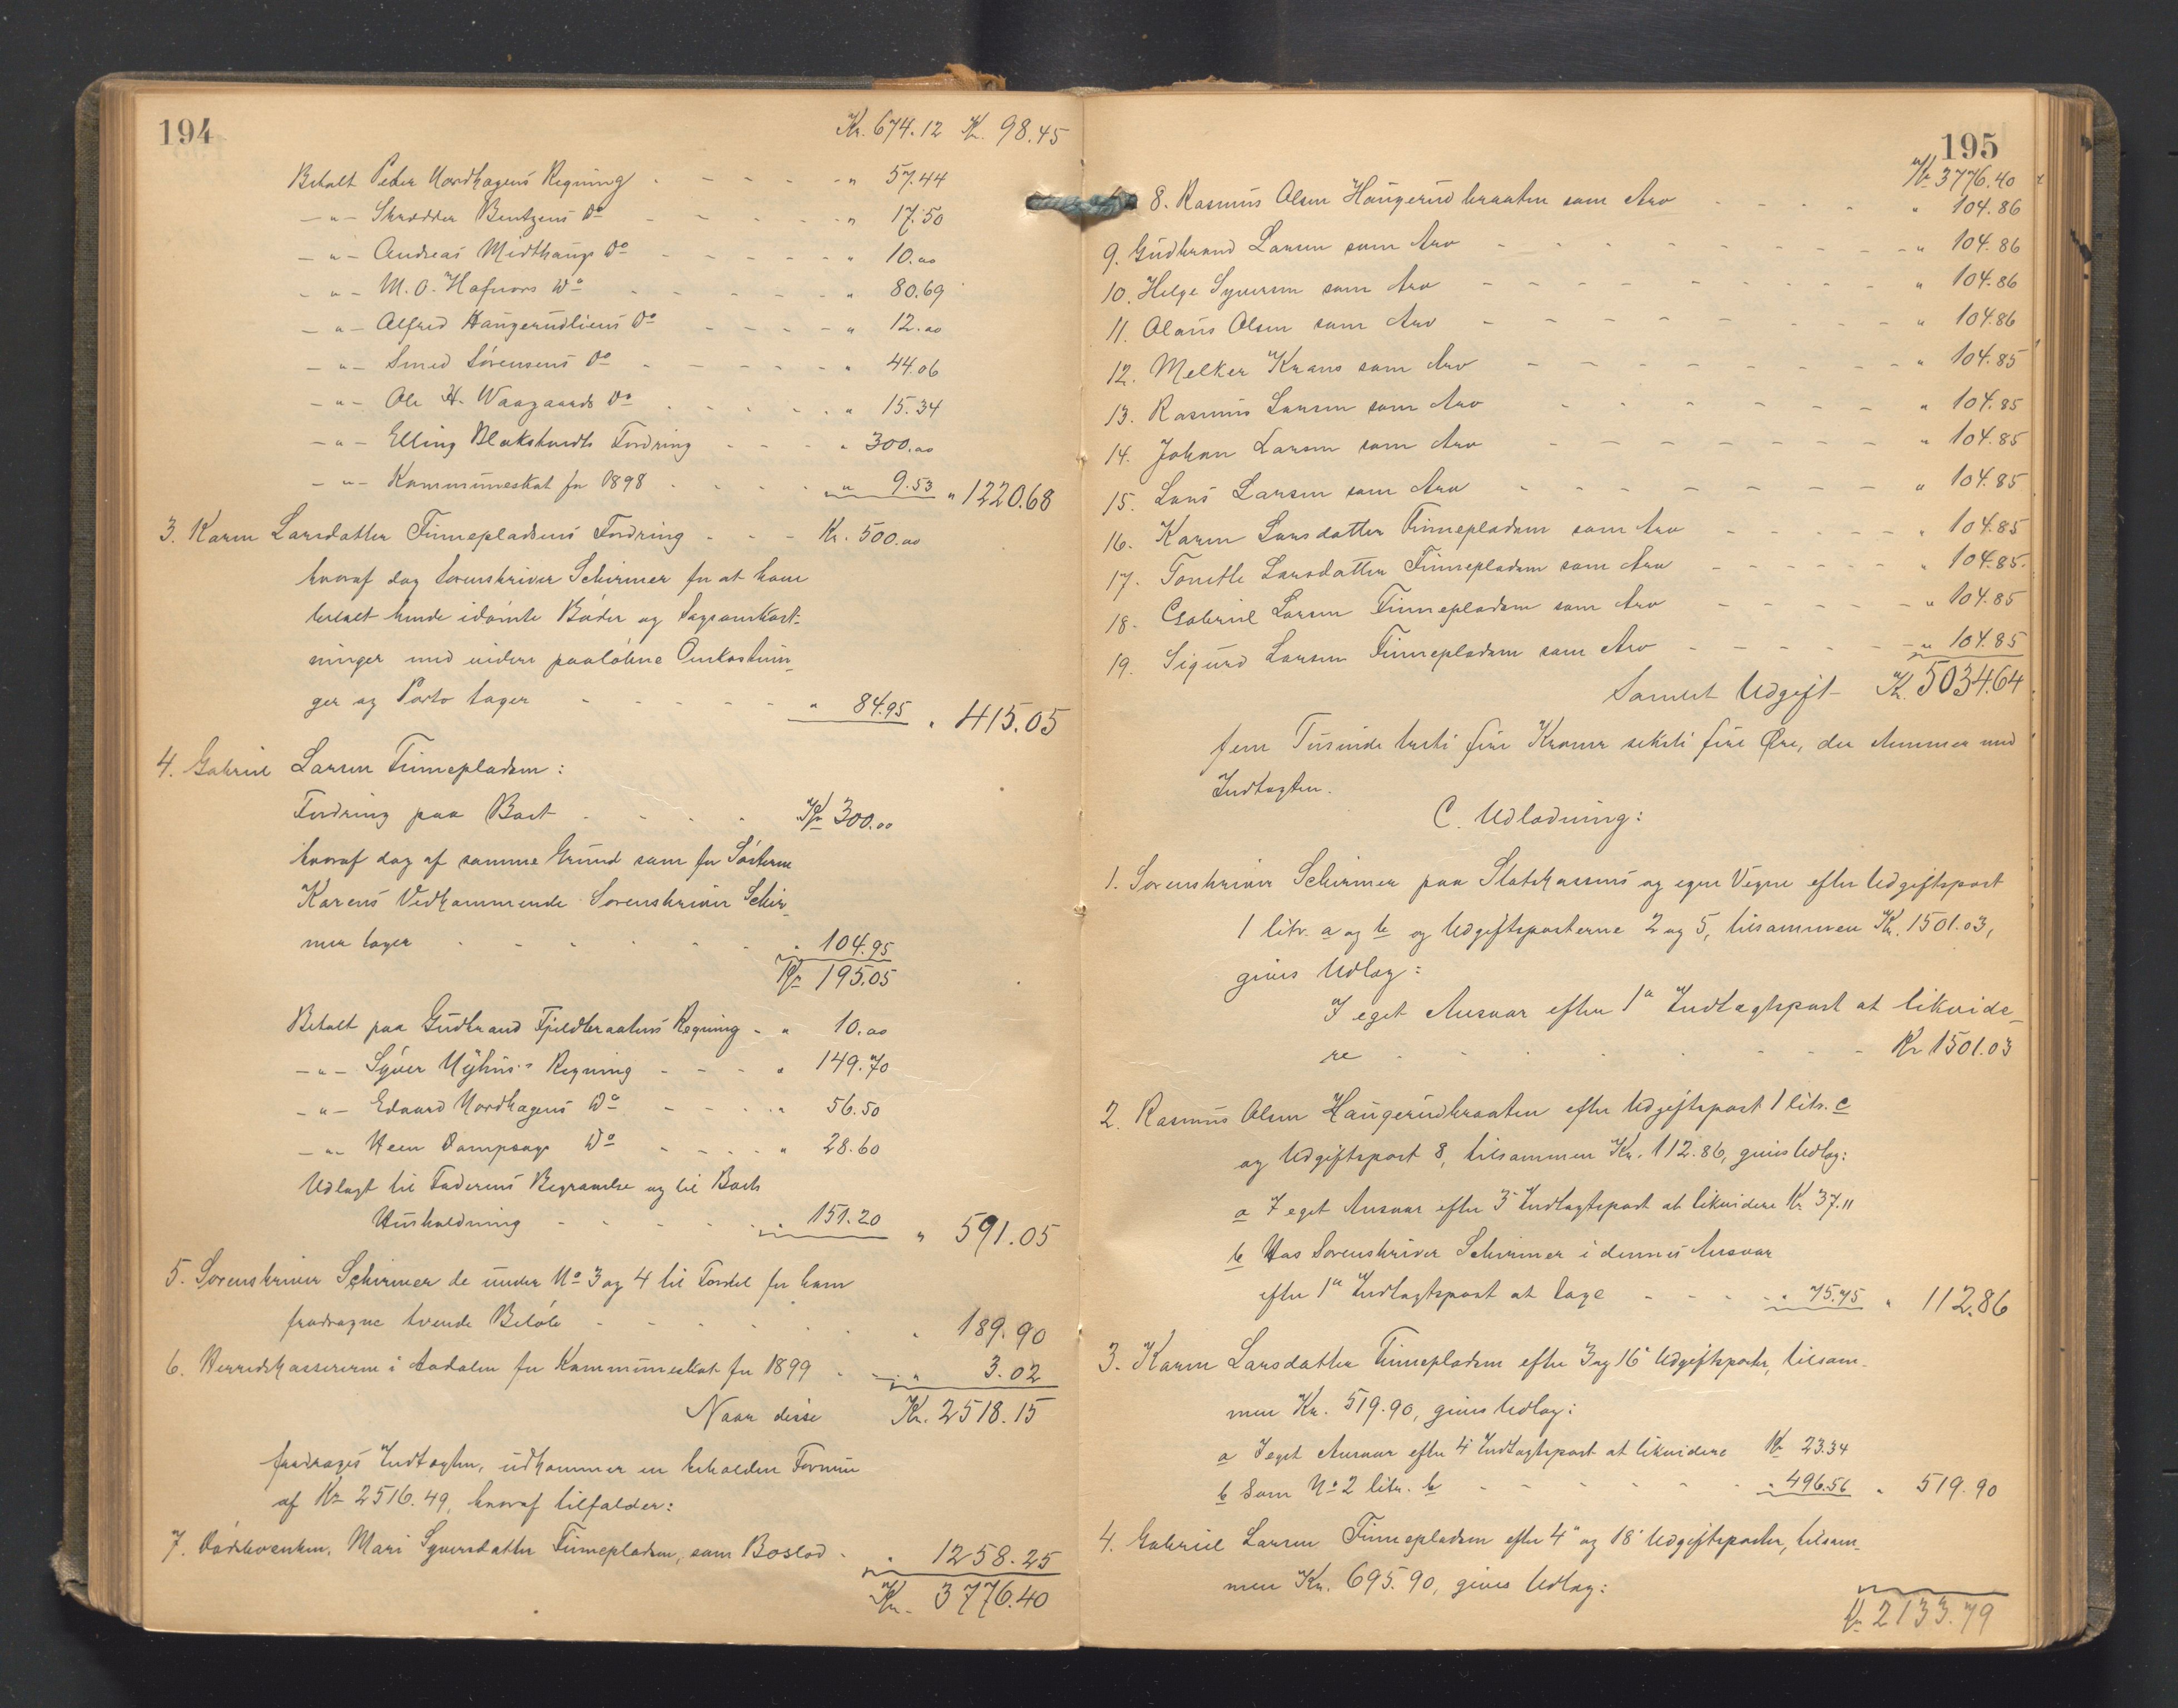 194
Kr. 674.12 Kr. 98.45
Betalt Peder Nordhagens Regning - - - - " 57.44
- " - Skrædder Bentzens Do - - - - " 17.50
- " - Andreas Midthaugs Do - - - - " 10.00
- " - M. O. Hafnors Do - - - - " 80.69
- " - Alfred Haugerudliens Do - - - - " 12.00
- " - Smed Sørensens Do - - - - " 44.06
- " - Ole H. Waagaards Do - - - - " 15.34
- " - Elling Blakstvedts Fordring - - - " 300.00
- " - Kommuneskat for 1898 - - - - " 9.53 " 1220.68
3. Karen Larsdatter Finnepladsens Fordring - - - Kr. 500.00
hvoraf dog Sorenskriver Schirmer for at have
betalt hende idømte Bøder og Sagsomkost-
ninger med videre paaløbne Omkostnin-
ger og Porto tager - - - - - " 84.95 " 415.05
4. Gabriel Larsen Finnepladsen:
Fordring paa Boet - - - - Kr 300.00
hvoraf dog af samme Grund som for Søsteren
Karens Vedkommende Sorenskriver Schir-
mer tager - - - - - " 104.95
Kr 195.05
Betalt paa Gudbrand Fjeldbraatens Regning - " 10.00
- " - Syver Nyhus's Regning - - - " 149.70
- " - Edvard Nordhagens Do - - - " 56.50
- " - Heen Dampsags Do - - - - " 28.60
Udlagt til Faderens Begravelse og til Boets
Husholdning - - - - - " 151.20 " 591.05
5. Sorenskriver Schirmer de under No 3 og 4 til Fordel for ham
fradragne tvende Beløb - - - - - " 189.90
6. Herredskassereren i Aadalen for Kommuneskat for 1899 - - " 3.02
Naar disse Kr. 2518.15
fradrages Indtægten, udkommer en beholden Formue
af Kr 2516.49, hvoraf tilfalder:
7. Mari Syversdatter Finnepladsen, som Boslod - " 1258.25
Kr. 3776.40
195
Kr 3776.40
8. Rasmus Olsen Haugerudbraaten som Arv - - - - " 104.86
9. Gudbrand Larsen som Arv - - - - - - - " 104.86
10. Helge Syversen som Arv - - - - - - - " 104.86
11. Olaus Olsen som Arv - - - - - - - " 104.86
12. Melker Krans som Arv - - - - - - - " 104.85
13. Rasmus Larsen som Arv - - - - - - " 104.85
14. Johan Larsen som Arv - - - - - - - " 104.85
15. Lars Larsen som Arv - - - - - - - " 104.85
16. Karen Larsdatter Finnepladsen som Arv - - - - " 104.85
17. Tonette Larsdatter Finnepladsen som Arv - - - - - " 104.85
18. Gabriel Larsen Finnepladsen som Arv - - - - - " 104.85
19. Sigurd Larsen Finnepladsen som Arv - - - - - " 104.85
Samlet Udgift Kr. 5034.64
fem Tusinde treti fire Kroner seksti fire Øre, der stemmer med
Indtægten.
C. Udlodning:
1. Sorenskriver Schirmer paa Statskassens og egne Vegne efter Udgiftspost
1 litr. a og b og Udgiftsposterne 2 og 5, tilsammen Kr. 1501.03,
gives Udlæg:
I eget Ansvar efter 1a Indtægtspost at likvide-
re - - - - - - - Kr 1501.03
2. Rasmus Olsen Haugerudbraaten efter Udgiftspost 1 litr. c
og Udgiftspost 8, tilsammen Kr. 112.86, gives Udlæg:
a I eget Ansvar efter 3 Indtægtspost at likvidere Kr 37.11
b Hos Sorenskriver Schirmer i dennes Ansvar
efter 1a Indtægtspost at tage - - - - " 75.75 " 112.86
3. Karen Larsdatter Finnepladsen efter 3 og 16 Udgiftsposter, tilsam-
men Kr. 519.90, gives Udlæg:
a I eget Ansvar efter 4 Indtægtspost at likvidere Kr 23.34
b Som No 2 litr. b - - - - - - " 496.56 " 519.90
4. Gabriel Larsen Finnepladsen efter 4 og 18 Udgiftsposter, tilsam-
men Kr. 695.90, gives Udlæg:
Kr 2133.79